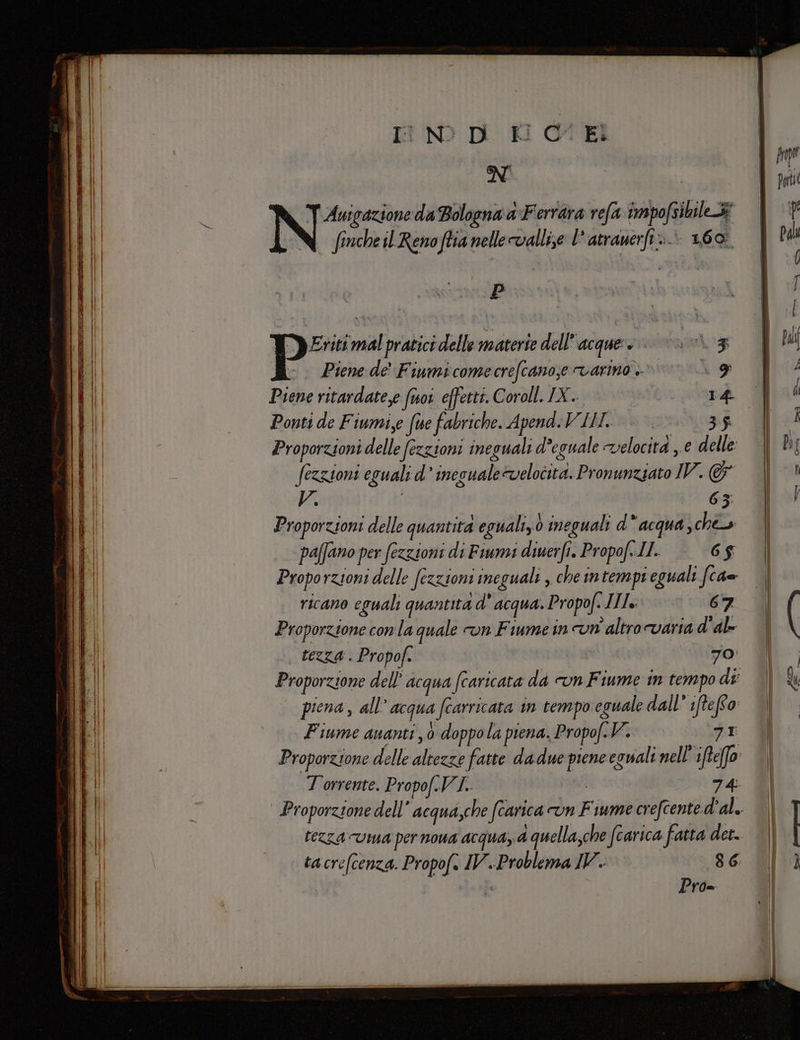 INDICE
N
NAuigazione da Bologna à Ferrara resa impossibile
finche il Reno stia nelle valli,e l'atrauersi. 160
P
PEriti mal pratici delle materie dell'acque. 3
Piene de' Fiumi come crescano,e varino. 9
Piene ritardate,e suoi effetti. Coroll. IX. 14
Ponti de Fiumi,e sue fabriche. Apend. VIII. 35
Proporzioni delle sezzioni ineguali d'eguale velocità, e delle
sezzioni eguali d'ineguale velocità. Pronunziato IV. &
V. 63
Proporzioni delle quantità eguali, ò ineguali d'acqua, che
passano per sezzioni di Fiumi diuersi. Propos. II. 65
Proporzioni delle sezzioni ineguali, che in tempi eguali sca-
ricano eguali quantità d'acqua. Propos. III. 67
Proporzione con la quale vn Fiume in vn'altro varia d'al-
tezza. Propos. 70
Proporzione dell'acqua scaricata da vn Fiume in tempo di
piena, all'acqua scarricata in tempo eguale dall'istesso
Fiume auanti, ò doppo la piena. Propos. V. 71
Proporzione delle altezze fatte da due piene eguali nell'istesso
Torrente. Propos. VI. 74
Proporzione dell'acqua,che scarica vn Fiume crescente d'al-
tezza viua per noua acqua, à quella,che scarica fatta det-
ta crescenza. Propos. IV. Problema IV. 86
Pro-